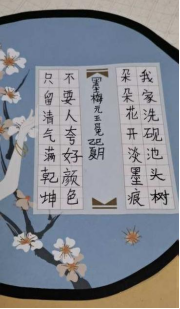 我家洗砚池头树
朵朵花开淡墨痕
墨梅元王冕
不要人夸好颜色
只留清气满乾坤